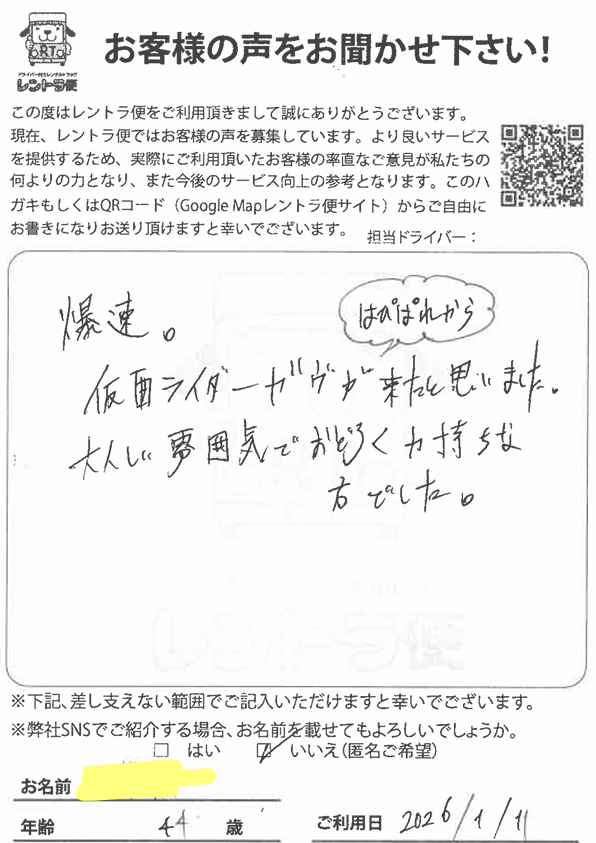 お客様の声をお聞かせ下さい!
RT
ドライバー付きレンタルトラック
レントラ便
この度はレントラ便をご利用頂きまして誠にありがとうございます。
現在、レントラ便ではお客様の声を募集しています。より良いサービス
を提供するため、実際にご利用頂いたお客様の率直なご意見が私たちの
何よりの力となり、また今後のサービス向上の参考となります。このハ
ガキもしくはQRコード（Google Mapレントラ便サイト）からご自由に
お書きになりお送り頂けますと幸いでございます。 担当ドライバー：
はぴぱれから
爆速。
仮面ライダーガヴが来たと思いました。
大人しい雰囲気でおどろく力持ちな
方でした。
レントラ便
※下記、差し支えない範囲でご記入いただけますと幸いでございます。
※弊社SNSでご紹介する場合、お名前を載せてもよろしいでしょうか。
□ はい ☑ いいえ(匿名ご希望)
お名前
年齢 44 歳 ご利用日 2026/1/11